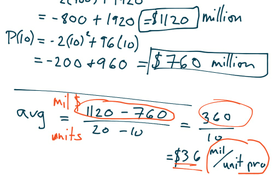 = -800 + 1920 = $1120 million
P(10) = -2(10)² + 96(10)
= -200 + 960 = $760 million
avg = mil $ 1120 - 760 / units 20 - 10 = 360 / 10
= $36 mil / unit pro